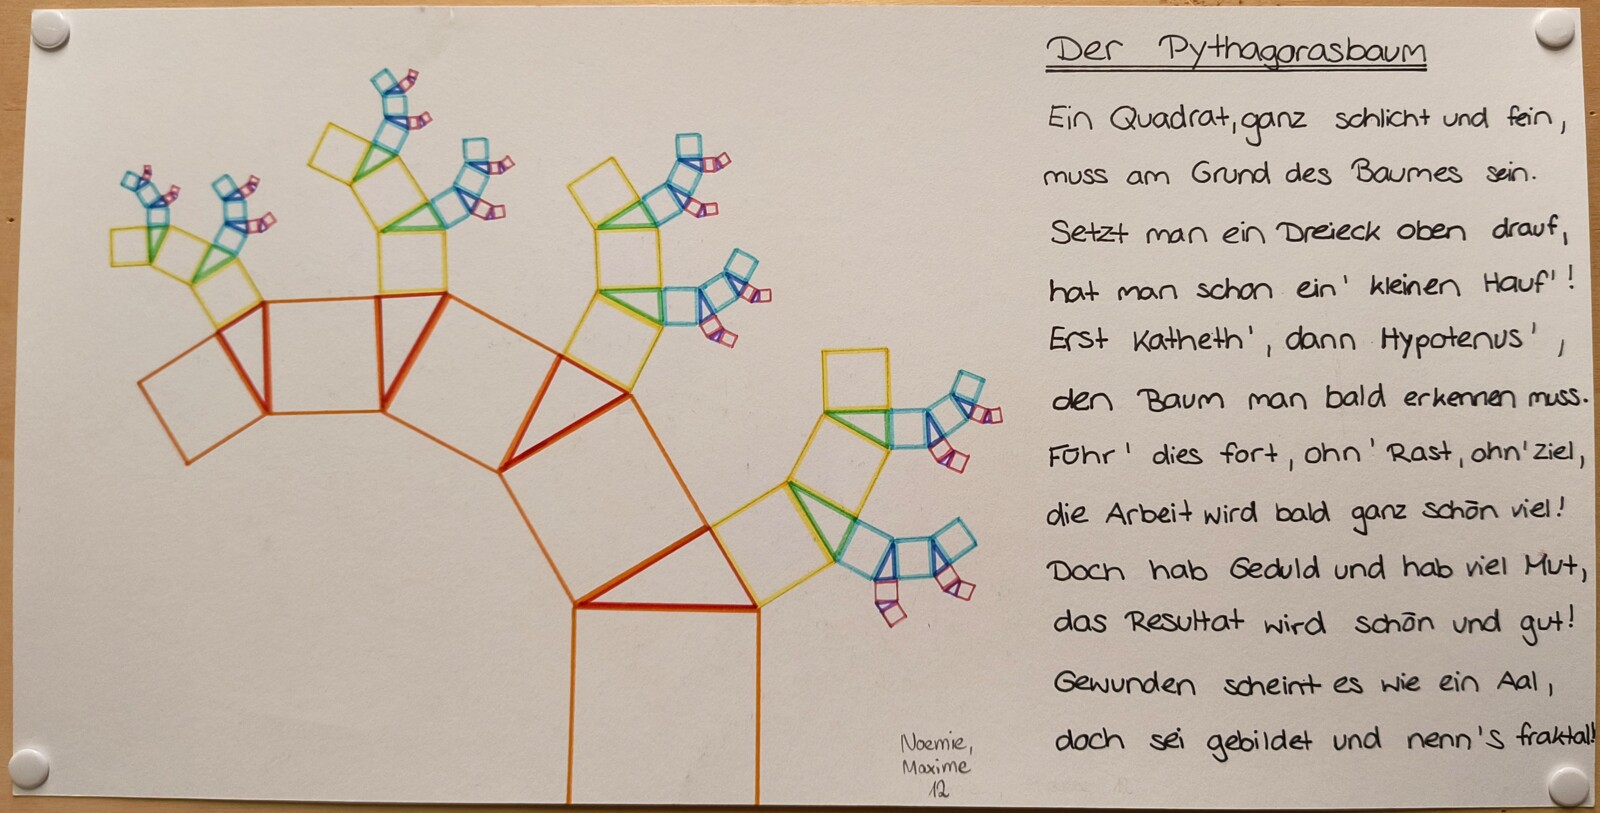 Der Pythagorasbaum
Ein Quadrat, ganz schlicht und fein,
muss am Grund des Baumes sein.
Setzt man ein Dreieck oben drauf,
hat man schon ein' kleinen Hauf'!
Erst Katheth', dann Hypotenus',
den Baum man bald erkennen muss.
Führ' dies fort, ohn' Rast, ohn' Ziel,
die Arbeit wird bald ganz schön viel!
Doch hab Geduld und hab viel Mut,
das Resultat wird schön und gut!
Gewunden scheint es wie ein Aal,
doch sei gebildet und nenn's fraktal!
Noemie,
Maxime
12